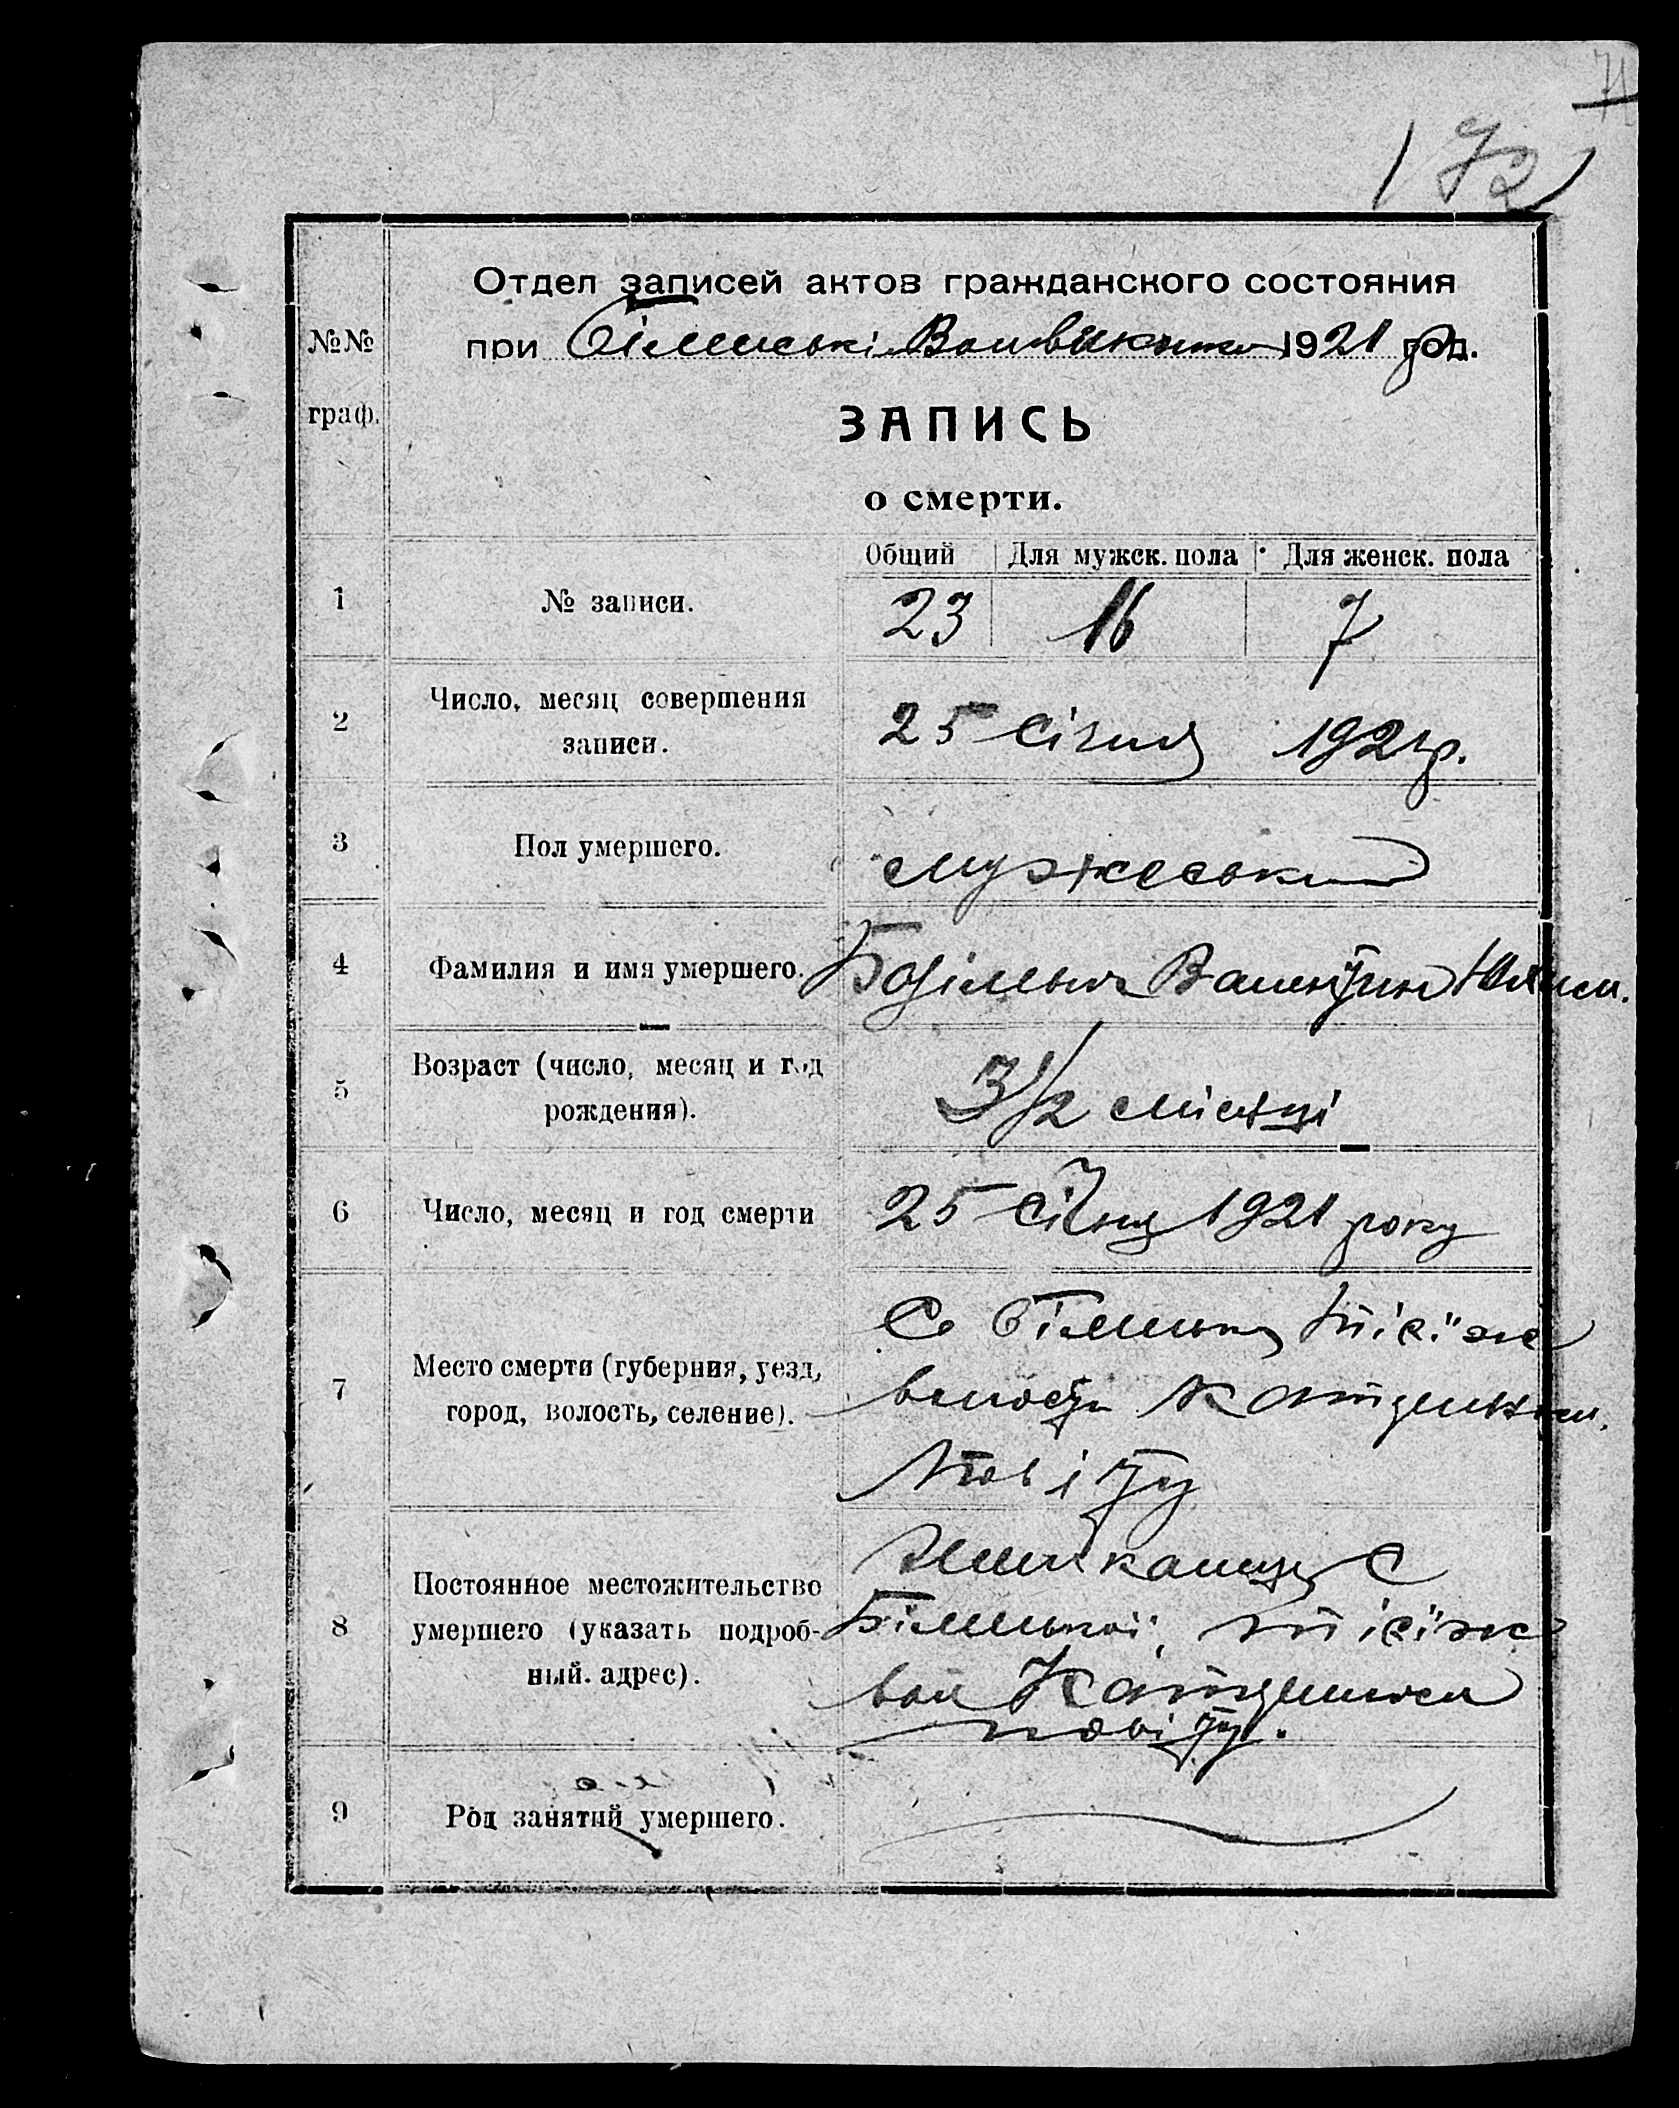 71
172
№№ граф.
Отдел записей актов гражданского состояния
при 1921 год.
ЗАПИСЬ
о смерти.
Общий Для мужск. пола Для женск. пола
1 № записи. 23 16 7
2 Число, месяц совершения записи. 25 Січня 1921 р.
3 Пол умершего. мужеський
4 Фамилия и имя умершего. Валентин
5 Возраст (число, месяц и год рождения). 3 1/2 місяці
6 Число, месяц и год смерти 25 Січня 1921 року
7 Место смерти (губерния, уезд, город, волость, селение). С.
волости
Повіту
8 Постоянное местожительство умершего (указать подроб- ный. адрес). С
вол
повіту.
9 Род занятий умершего.